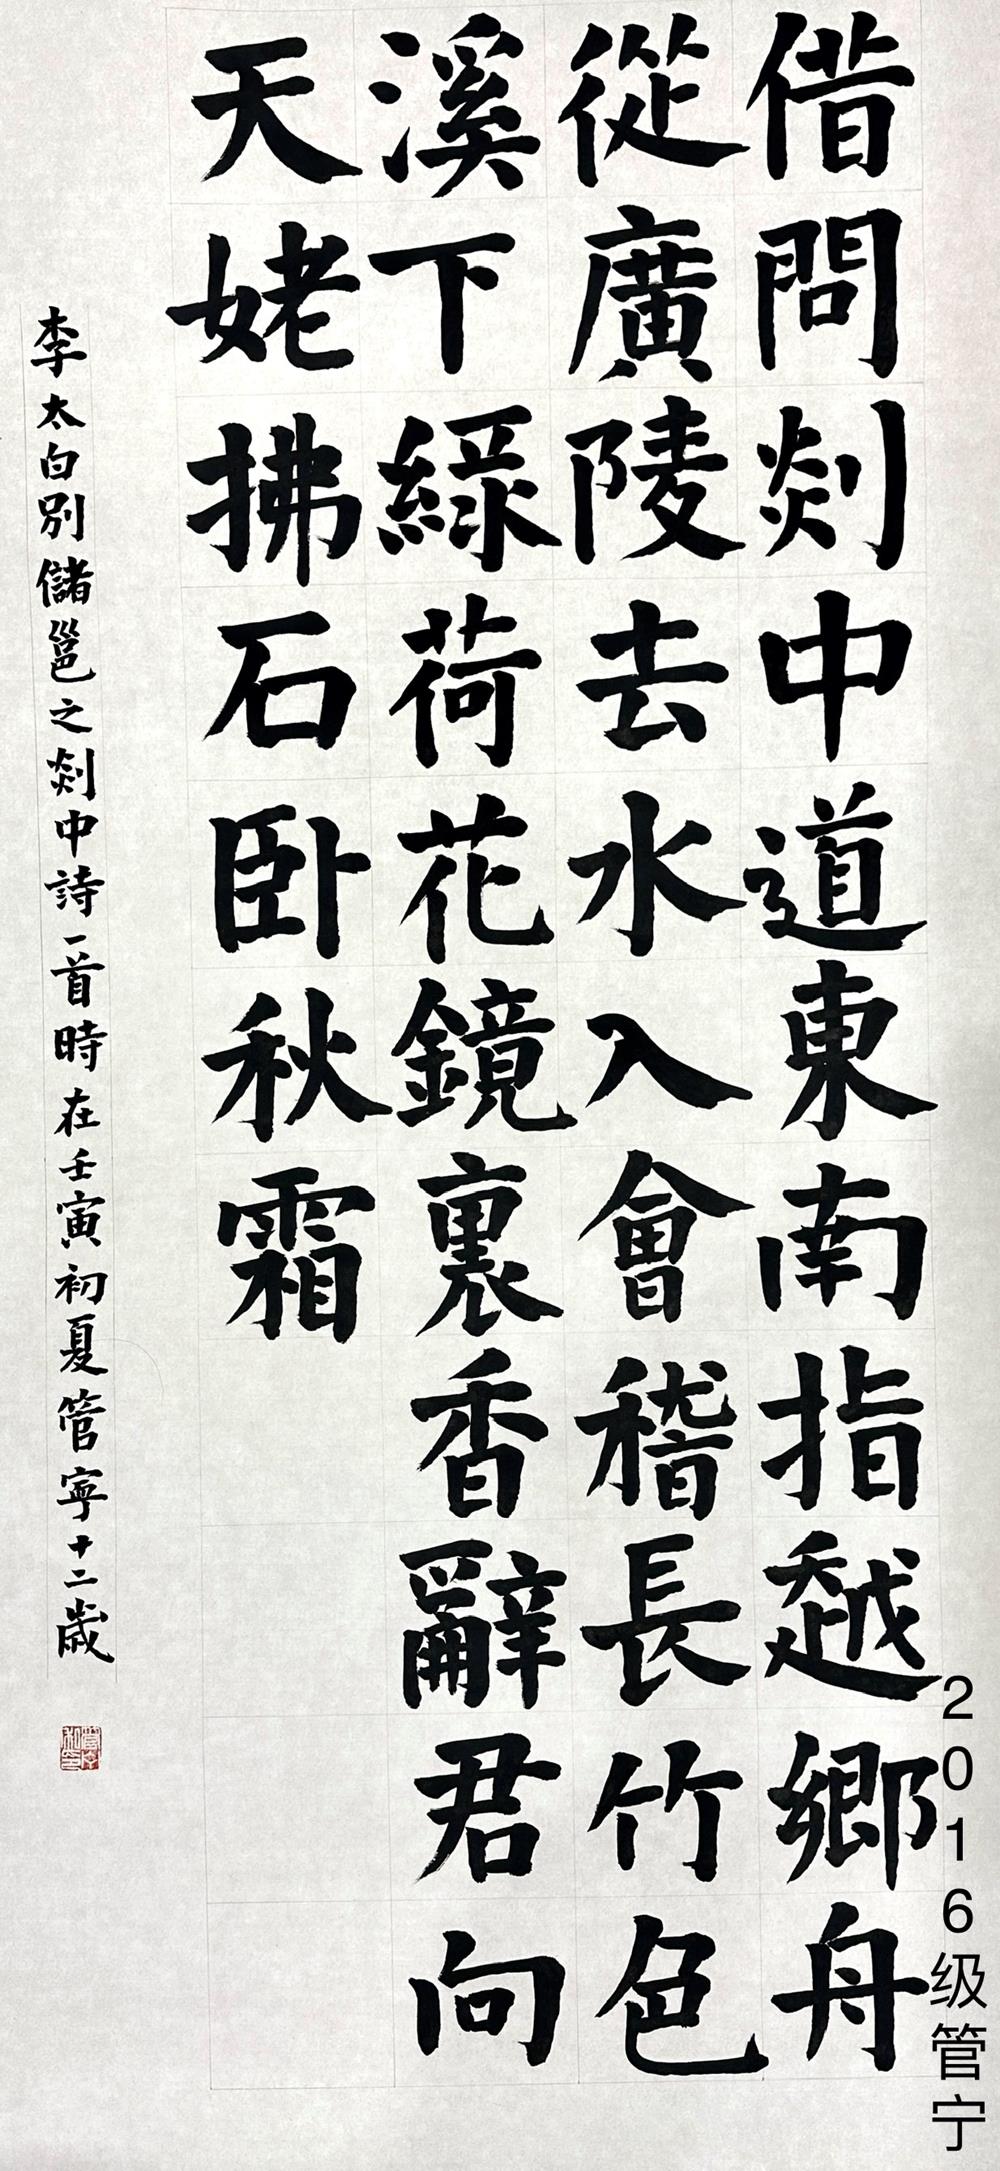 借問剡中道東南指越鄉舟
從廣陵去水入會稽長竹色
溪下綠荷花鏡裏香辭君向
天姥拂石卧秋霜
李太白別儲邕之剡中詩一首時在壬寅初夏管寧十二歲
2016级管宁